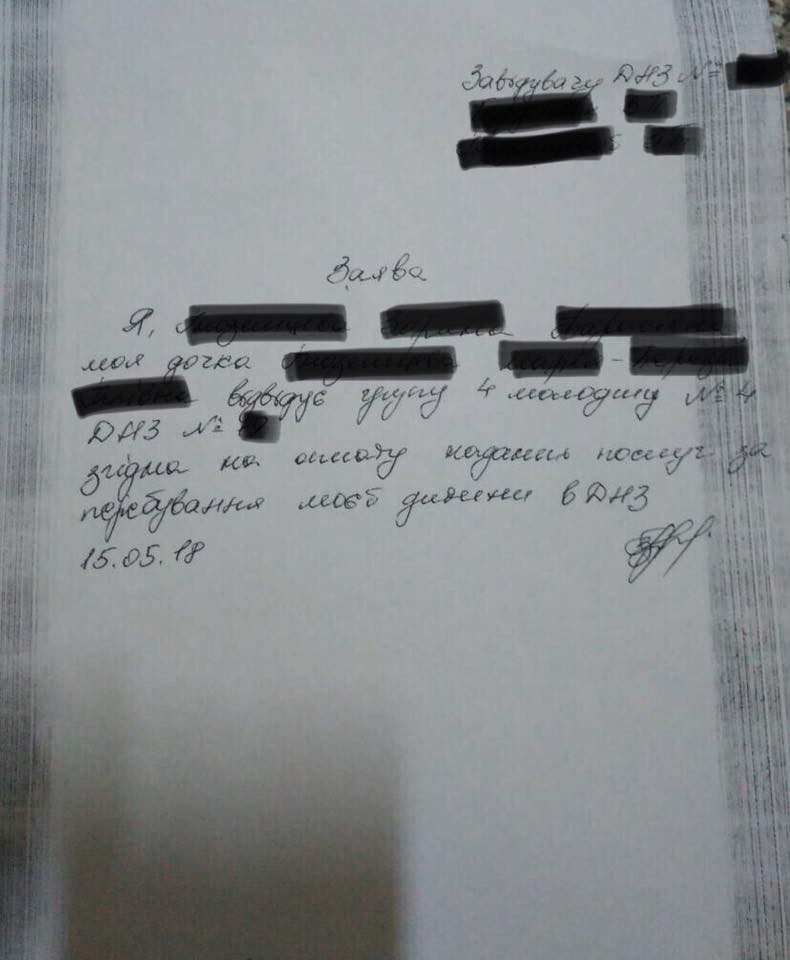 Завідувачу ДНЗ №
Заява
Я,
моя дочка
відвідує групу 4 молодшу № 4
ДНЗ №
згідна на оплату надання послуг за
перебування моєї дитини в ДНЗ
15.05.18